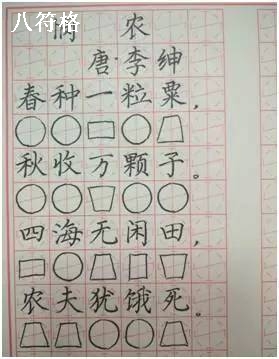 八符格
悯 农
唐·李绅
春种一粒粟,
秋收万颗子。
四海无闲田,
农夫犹饿死。